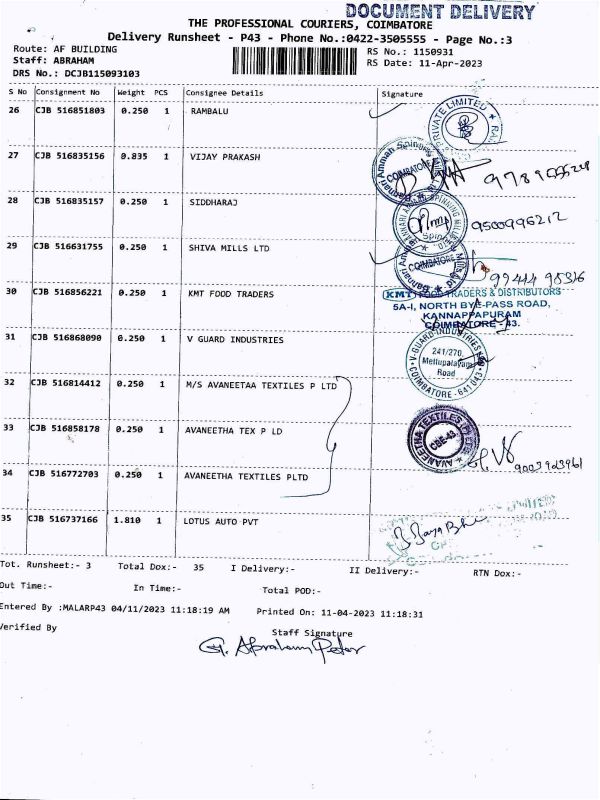 DOCUMENT DELIVERY
THE PROFESSIONAL COURIERS, COIMBATORE
Delivery Runsheet - P43 - Phone No.:0422-3505555 - Page No.:3
Route: AF BUILDING
RS No.: 1150931
Staff: ABRAHAM
RS Date: 11-Apr-2023
DRS No.: DCJB115093103
S No Consignment No Weight PCS Consignee Details Signature
26 CJB 516851803 0.250 1 RAMBALU
PRIVATE LIMITED
27 CJB 516835156 0.835 1 VIJAY PRAKASH
COIMBATORE
9789555
28 CJB 516835157 0.250 1 SIDDHARAJ
9500996212
29 CJB 516631755 0.250 1 SHIVA MILLS LTD
COIMBATORE
99444 98316
30 CJB 516856221 0.250 1 KMT FOOD TRADERS
KMT FOOD TRADERS & DISTRIBUTORS
5A-I, NORTH BYE-PASS ROAD,
KANNAPPAPURAM
COIMBATORE - 43.
31 CJB 516868090 0.250 1 V GUARD INDUSTRIES
V-GUARD INDUSTRIES
241/270,
Mettupalayam
Road
COIMBATORE-641043
32 CJB 516814412 0.250 1 M/S AVANEETAA TEXTILES P LTD
33 CJB 516858178 0.250 1 AVANEETHA TEX P LD
AVANEETHA TEXTILES (P)
CBE-43
9003923961
34 CJB 516772703 0.250 1 AVANEETHA TEXTILES PLTD
35 CJB 516737166 1.810 1 LOTUS AUTO PVT
Tot. Runsheet:- 3 Total Dox:- 35 I Delivery:- II Delivery:- RTN Dox:-
Out Time:- In Time:- Total POD:-
Entered By :MALARP43 04/11/2023 11:18:19 AM Printed On: 11-04-2023 11:18:31
Verified By
Staff Signature
G. Abraham Peter